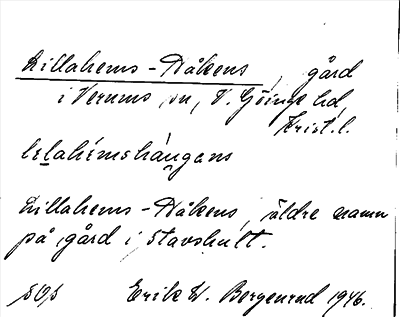 Lillahems-Håkens, gård
i Verums sn, V. Göinge hd,
Krist. l.
lelahémshángans
Lillahems-Håkens, äldre namn
på gård i Stavshult.
SOS Erik W. Bergenrud 1946.